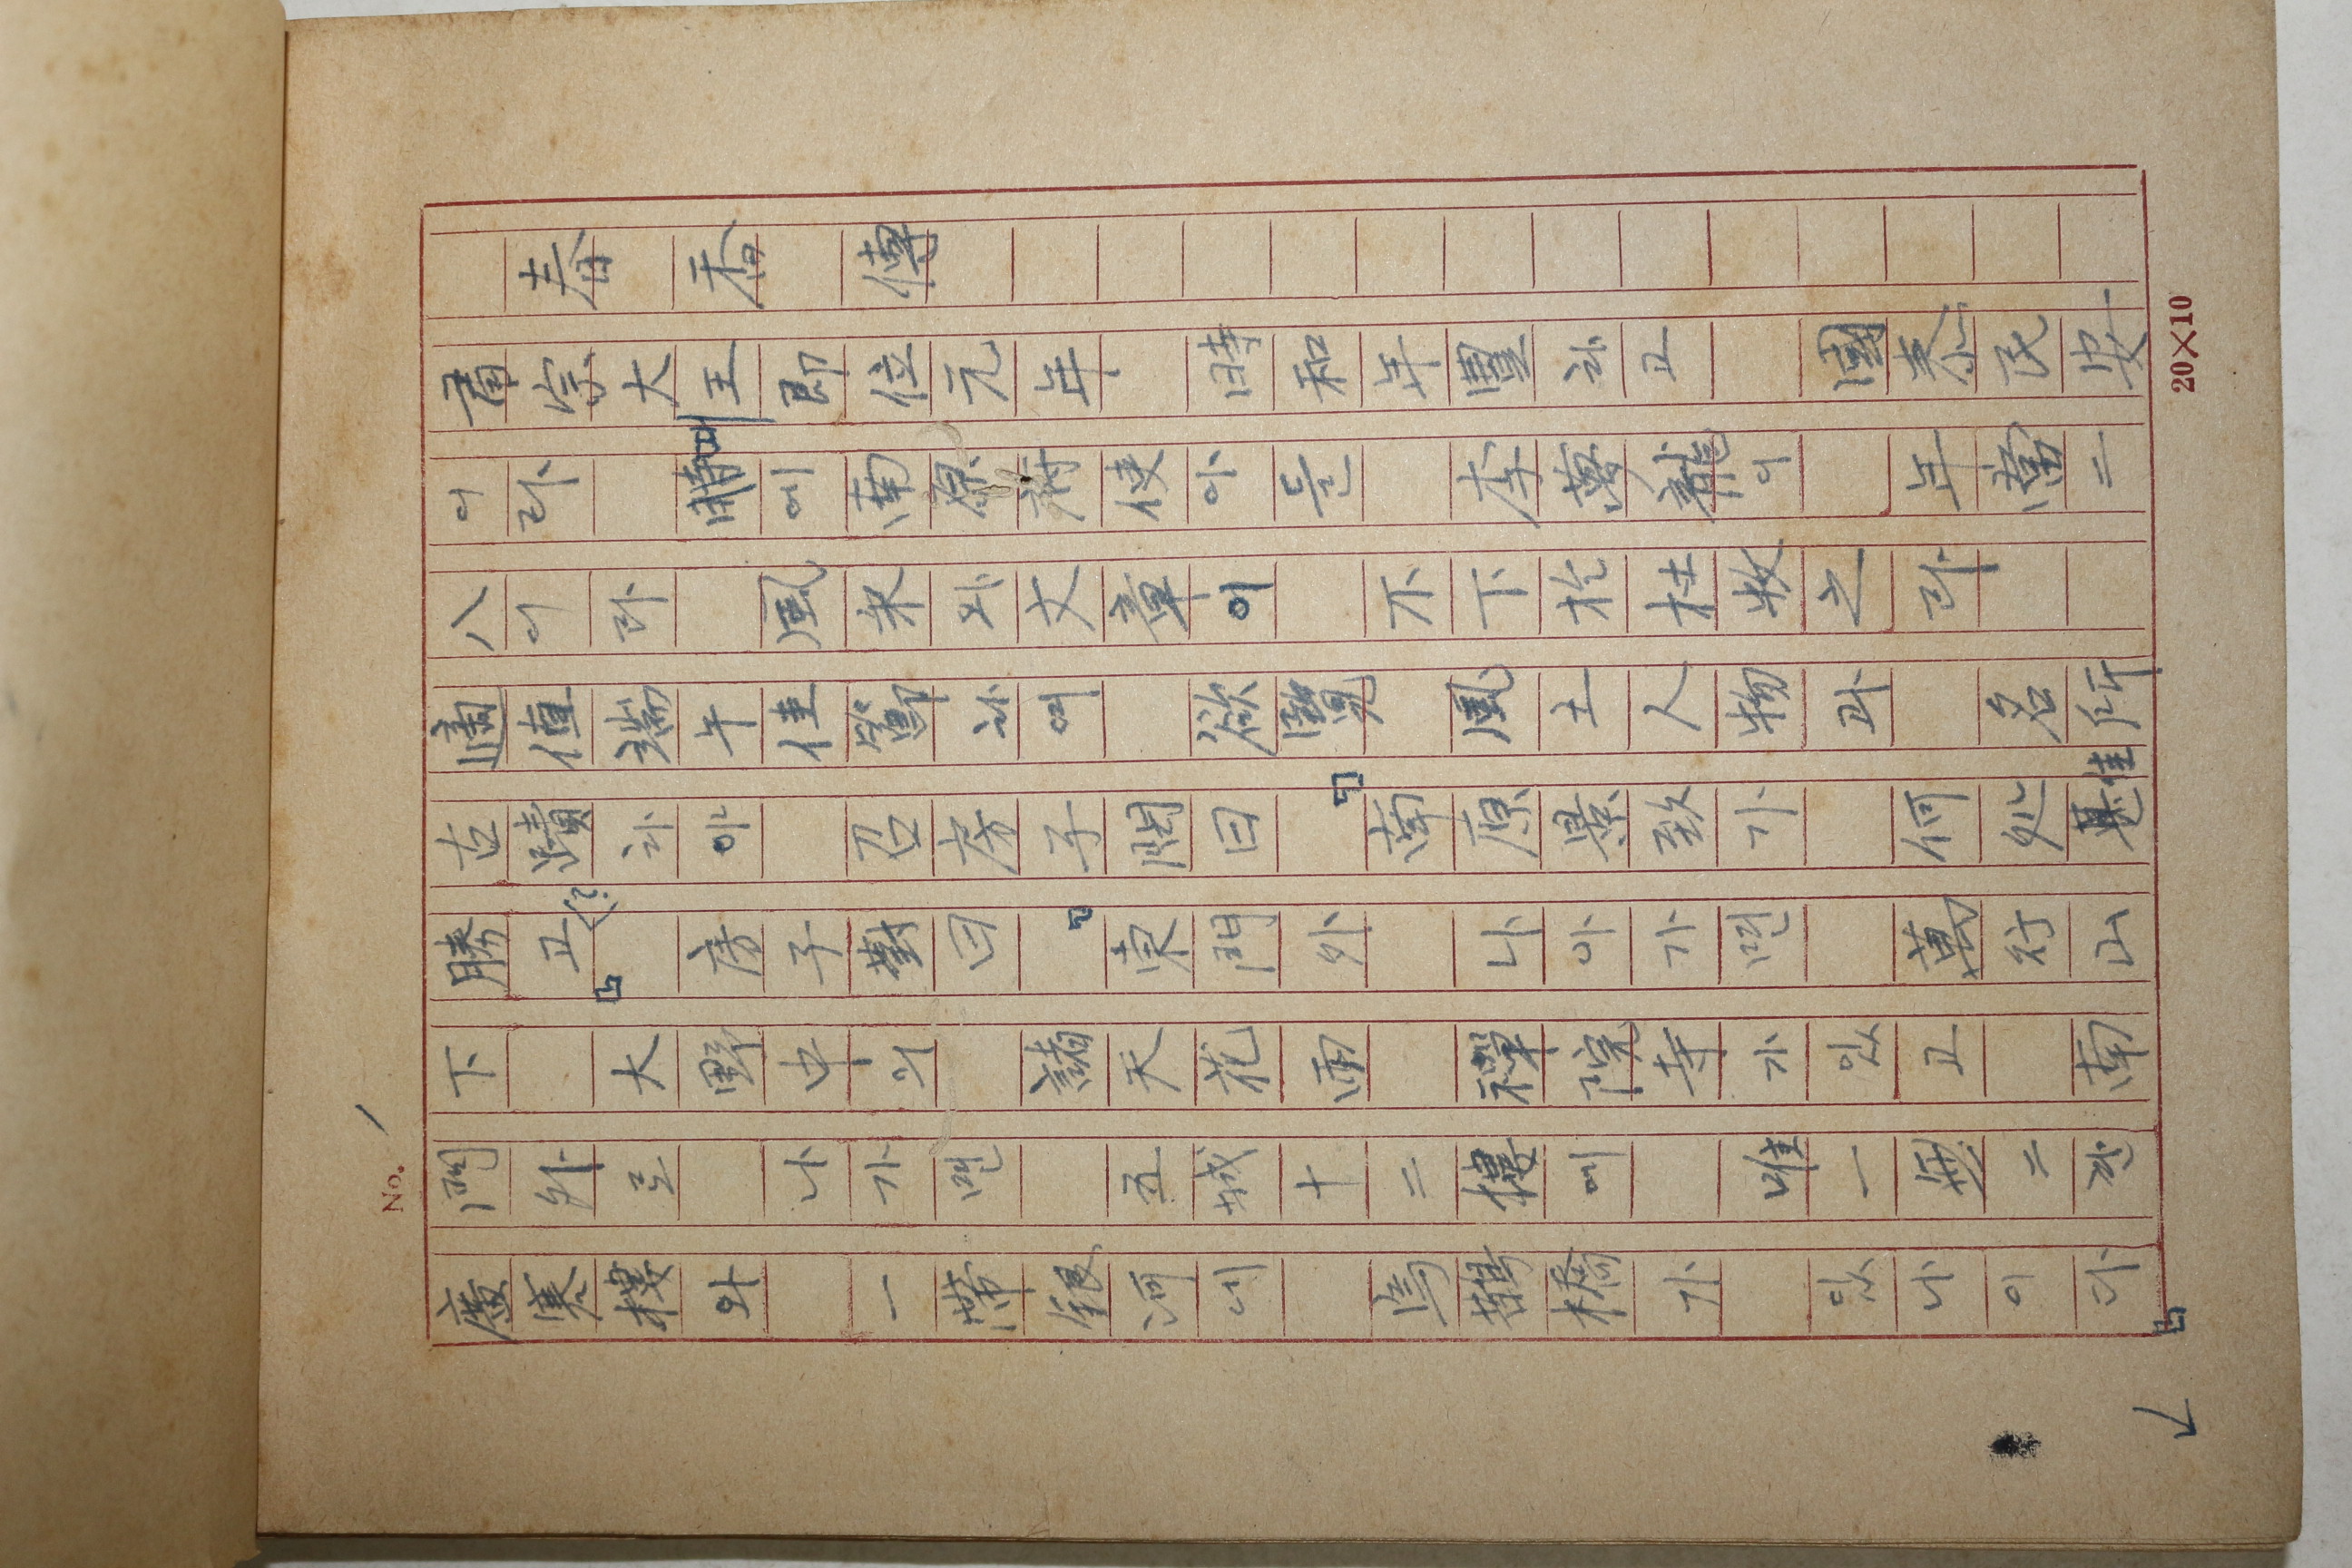 No. 1
春香傳
肅宗大王即位元年 時和年豐하고 國泰民安
이라 때 時에南原府使아들 李夢龍이 年當二
八이라 風采와文章이 不下於杜牧之라
適値瑞午佳節하여 欲覽 風土人物과 名所
古蹟하야 召房子問曰 「南原景致가 何処甚佳
勝고(?)」 房子對曰 「東門外 나아가면 萬行山
下 大野中의 諸天花雨 禪院寺가있고 南
門外로 나가면 五城十二樓에 唯一無二한
廣寒樓와 一帶銀河네 烏鵲橋가 있나이다」
20×10